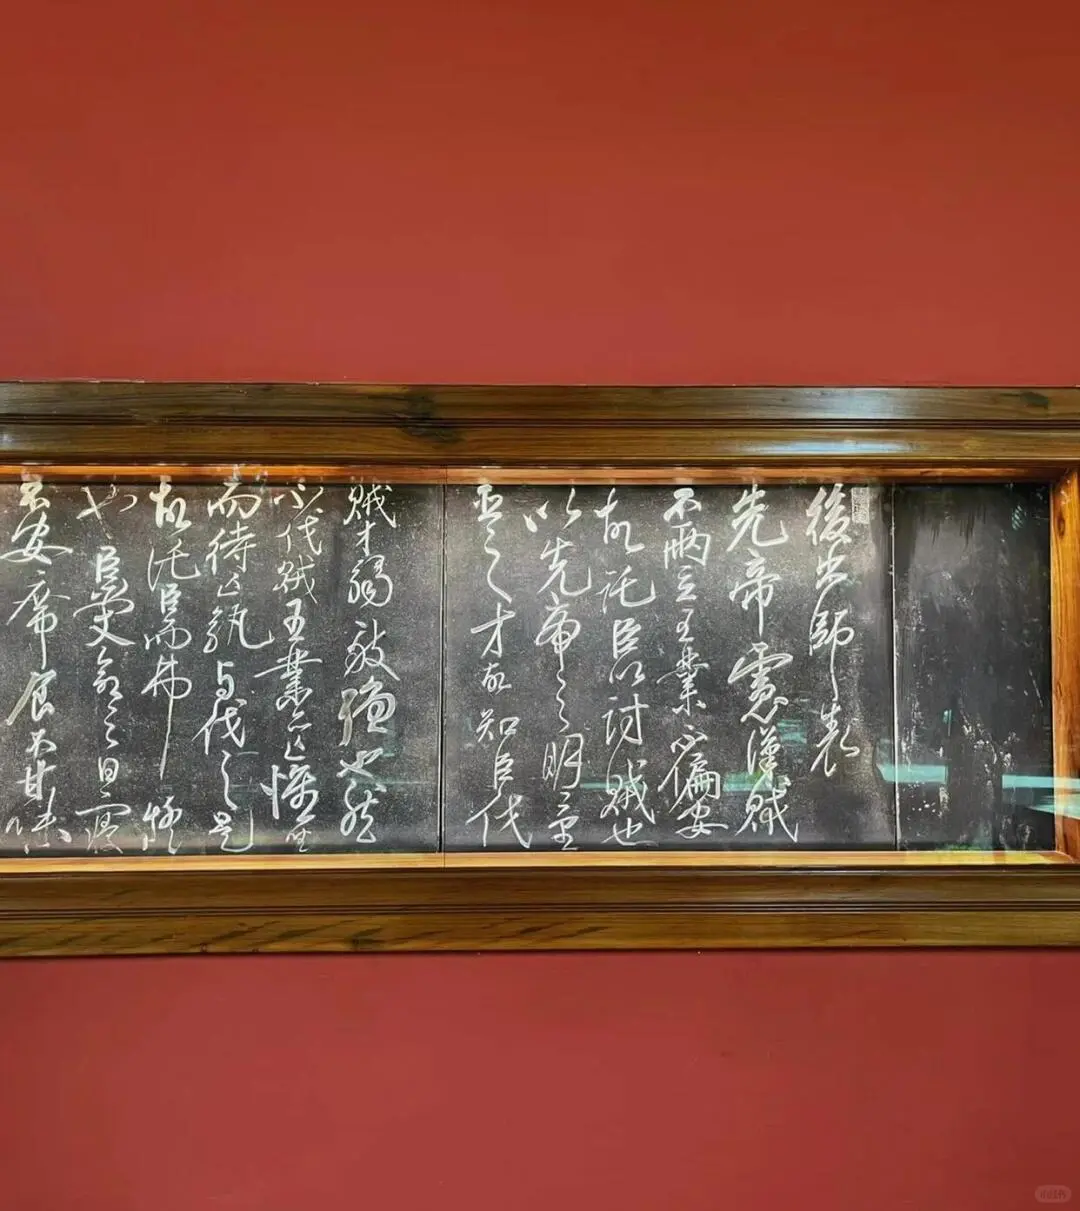 後出師表
先帝慮漢賊
不兩立王業不偏安
故託臣以討賊也
以先帝之明量
臣之才故知臣伐
賊才弱敵強也然
不伐賊王業亦亡惟坐
而待亡孰与伐之是
故託臣而弗疑
也臣受命之日寢
不安席食不甘味
小红书